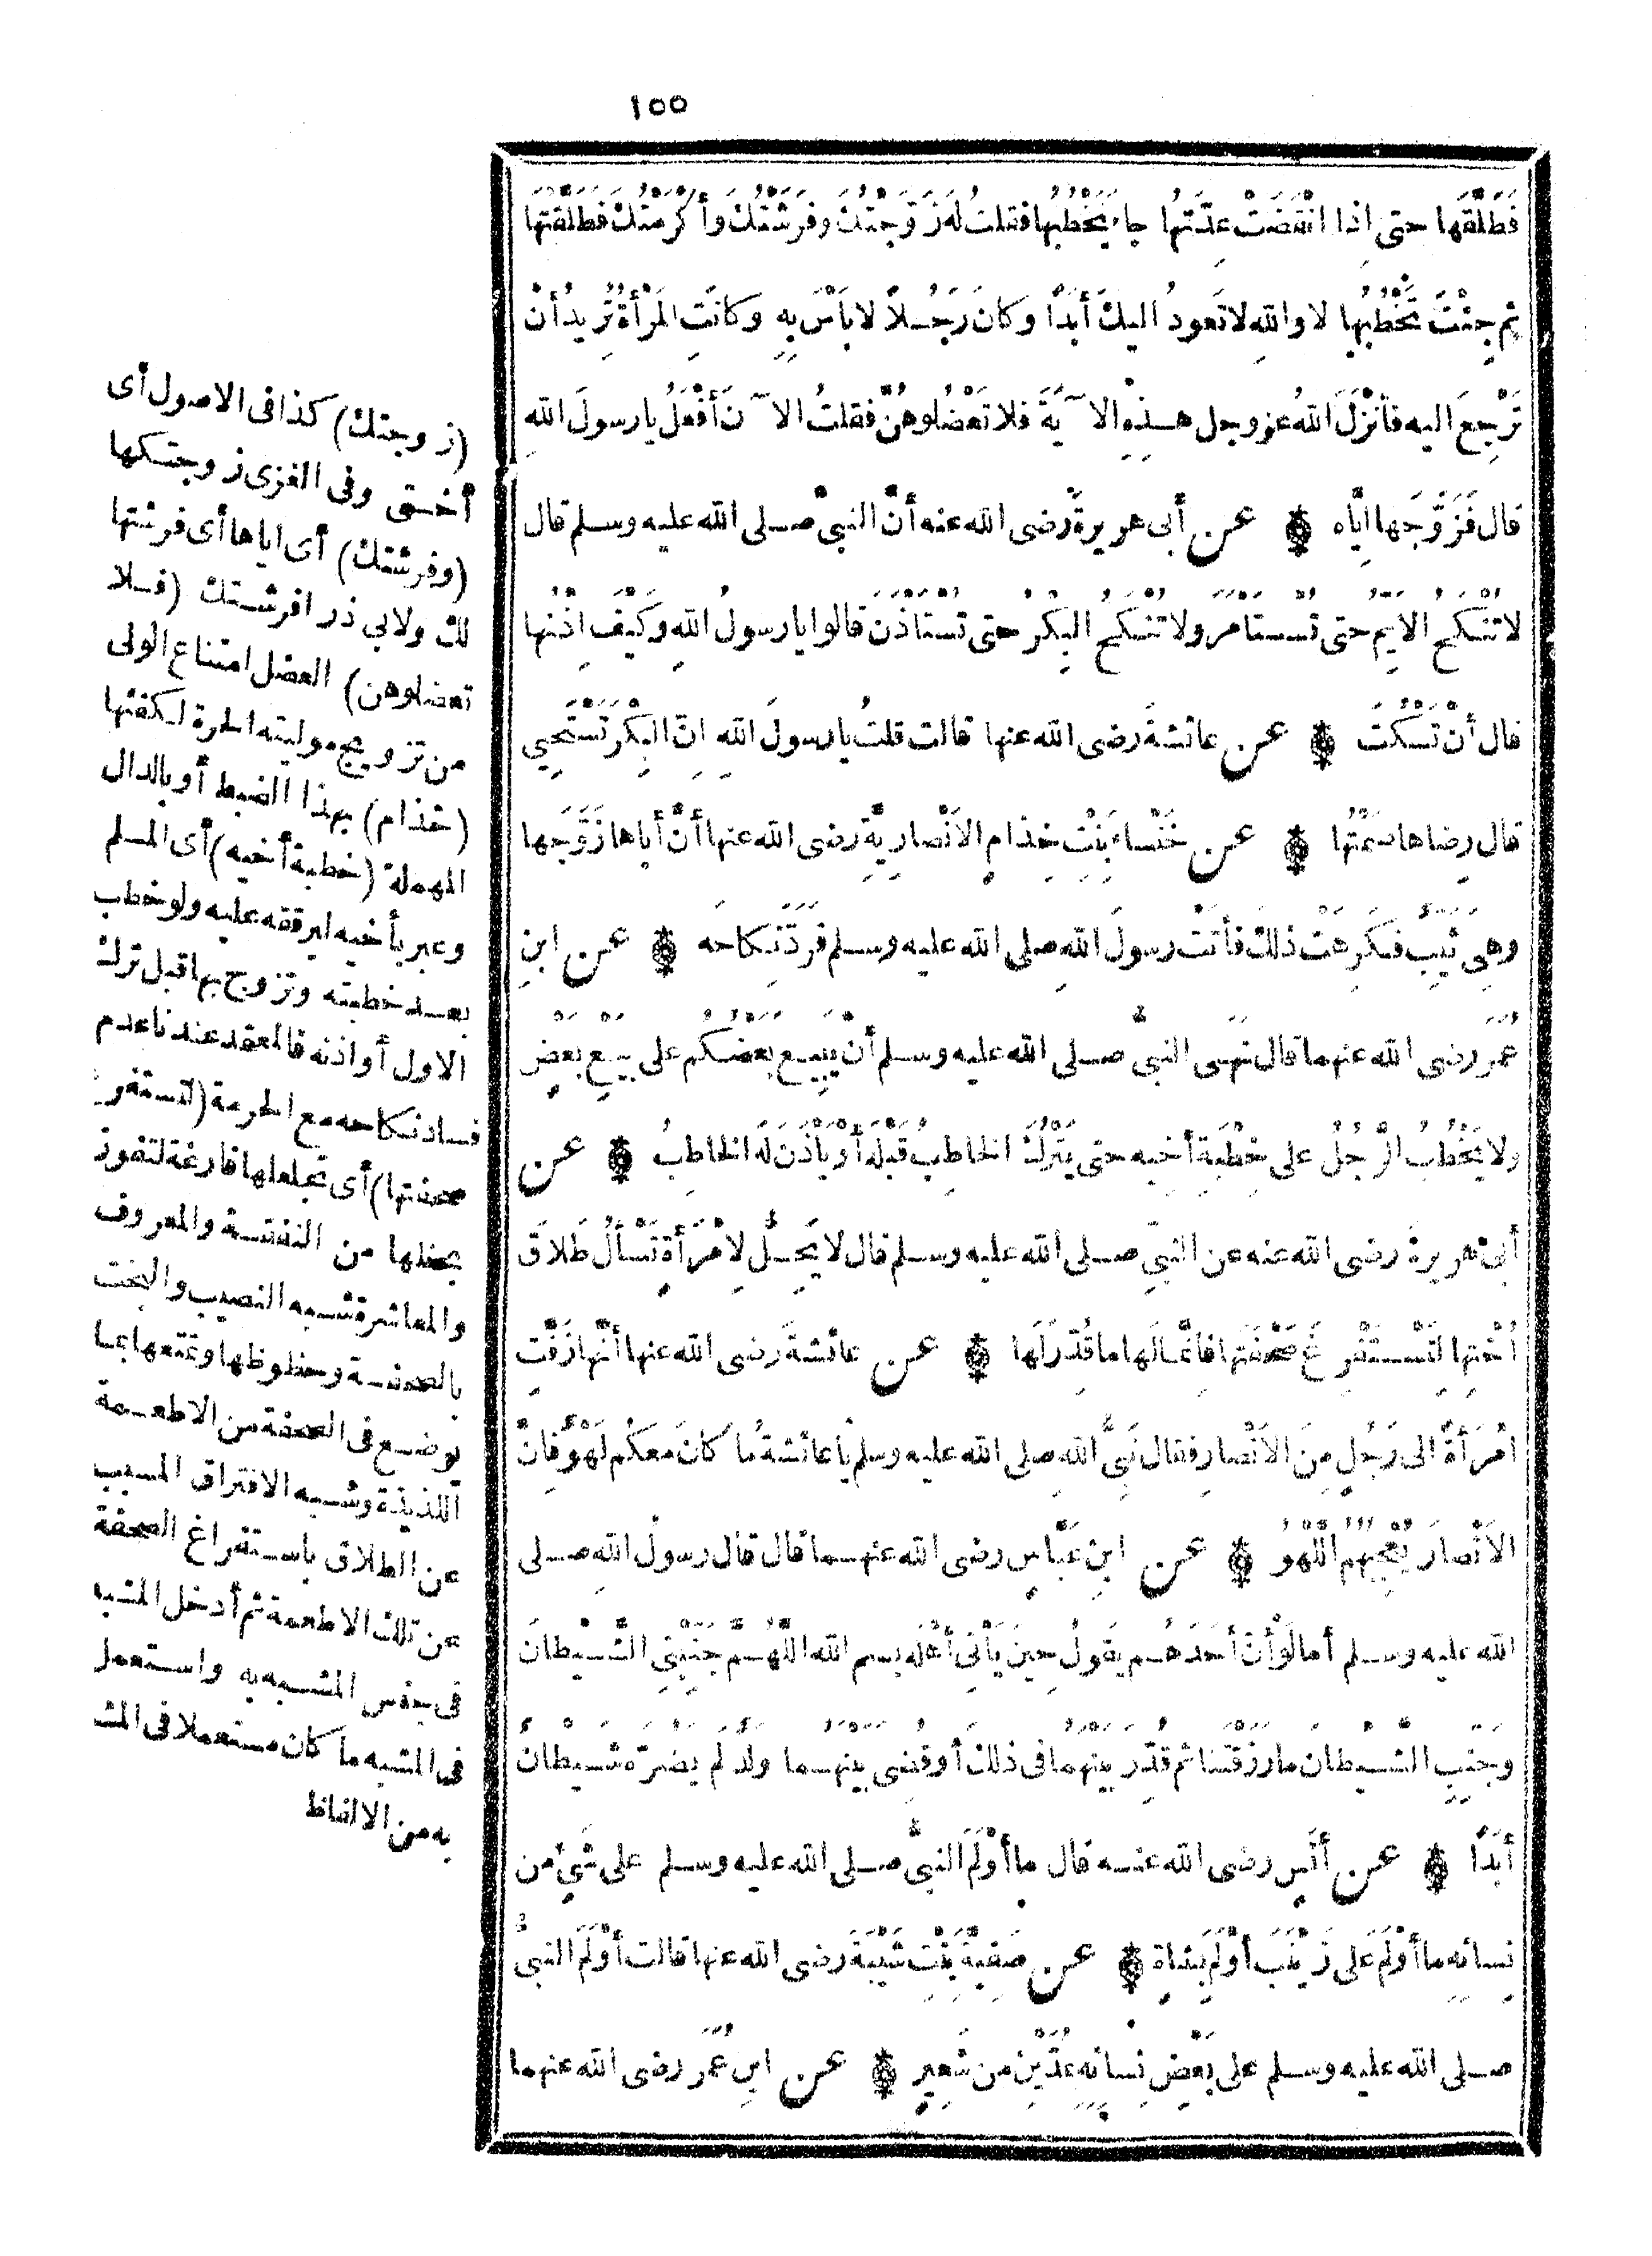 ١٥٥
فَطَلَّقَهَا حتى اذا انْقَضَتْ عِدَّتُها جاءَ يَخْطُبُها فقلتُ له زَوَّجْتُكَ وفَرَشْتُكَ وأَكْرَمْتُكَ فَطَلَّقْتَها
ثم جِئْتَ تَخْطُبُها لا واللهِ لا تَعودُ اليكَ أبَدًا وكانَ رَجُلاً لا بأسَ بِهِ وكانَتِ المَرْأةُ تُريدُ أنْ
تَرْجِعَ اليه فأنْزَلَ اللهُ عز وجل هذِهِ الآيَةَ فلا تَعْضُلُوهُنَّ فقلتُ الآنَ أفْعَلُ يا رسولَ اللهِ
قال فَزَوَّجَها ايَّاه ۞ عن أبى هريرةَ رضى الله عنه أنَّ النبىَّ صلى الله عليه وسلم قال
لا تُنْكَحُ الأيِّمُ حتى تُسْتَأمَرَ ولا تُنْكَحُ البِكْرُ حتى تُسْتَأذَنَ قالوا يا رسولَ اللهِ وكَيْفَ اذْنُها
قال أنْ تَسْكُتَ ۞ عن عائشةَ رضى الله عنها قالت قلتُ يا رسولَ اللهِ انَّ البِكْرَ تَسْتَحِيي
قال رِضاها صَمْتُها ۞ عن خَنْساءَ بِنْتِ خِذامٍ الأنْصارِيَّةِ رضى الله عنها أنَّ أباها زَوَّجَها
وهى ثَيِّبٌ فَكَرِهَتْ ذلكَ فأتَتْ رسولَ اللهِ صلى الله عليه وسلم فَرَدَّ نِكاحَه ۞ عن ابنِ
عُمَرَ رضى الله عنهما قال نَهَى النبىُّ صلى الله عليه وسلم أنْ يَبِيعَ بَعْضُكُم على بَيْعِ بَعْضٍ
ولا يَخْطُبُ الرَّجُلُ على خِطْبَةِ أخيه حتى يَتْرُكَ الخاطِبُ قَبْلَهُ أو يَأْذَنَ لَهُ الخاطِبُ ۞ عن
أبى هريرةَ رضى الله عنه عن النبىِّ صلى الله عليه وسلم قال لا يَحِلُّ لِامْرَأةٍ تَسْألُ طَلاقَ
أُخْتِها لِتَسْتَفْرِغَ صَحْفَتَها فإنَّما لَها ما قُدِّرَ لَها ۞ عن عائشةَ رضى الله عنها أنَّها زَفَّتِ
امْرَأةً الى رَجُلٍ مِنَ الأنْصارِ فقال نَبِىُّ اللهِ صلى الله عليه وسلم يا عائشةُ ما كانَ معكُم لَهْوٌ فإنَّ
الأنْصارَ يُعْجِبُهُمُ اللَّهْوُ ۞ عن ابنِ عَبَّاسٍ رضى الله عنهما قال قال رسولُ اللهِ صلى
الله عليه وسلم أما لَوْ أنَّ أحَدَهُم يَقولُ حِينَ يَأْتى أهْلَهُ بسم الله اللَّهُمَّ جَنِّبْنِى الشَّيْطانَ
وجَنِّبِ الشَّيْطانَ ما رَزَقْتَنا ثم قُدِّرَ بينَهُما فى ذلكَ أو قُضِىَ بينهما ولَدٌ لَمْ يضُرَّه شَيْطانٌ
أبَدًا ۞ عن أنَسٍ رضى الله عنه قال ما أَوْلَمَ النبىُّ صلى الله عليه وسلم على شَىْءٍ من
نِسائِه ما أَوْلَمَ على زَيْنَبَ أَوْلَمَ بِشاةٍ ۞ عن صَفِيَّةَ بِنْتِ شَيْبَةَ رضى الله عنها قالت أَوْلَمَ النبىُّ
صلى الله عليه وسلم على بَعْضِ نِسائِه بِمُدَّيْنِ من شَعِيرٍ ۞ عن ابنِ عُمَرَ رضى الله عنهما
(زوجتك) كذا فى الاصول أى
أختى وفى الغزى زوجتكها
(وفرشتك) أى اياها أى فرشتها
لك ولابي ذر افرشتك (فلا
تعضلوهن) العضل امتناع الولى
من تزويج موليته الحرة لكفئها
(خذام) بهذا الضبط أو بالدال
المهملة (خطبة أخيه) أى المسلم
وعبر بأخيه ليرققه عليه ولو خطب
بعد خطبته وتزوج بها قبل ترك
الاول أو اذنه فالعقد عندنا عدم
فساد نكاحه مع الحرمة (لتستفرغ
صحفتها) أى تجعلها فارغة لتفوز
بحظها من النفقة والمعروف
والمعاشرة شبه النصيب والبخت
بالصحفة وحظوظها وتمتعها بما
يوضع فى الصحفة من الاطعمة
اللذيذة وشبه الافتراق المسبب
عن الطلاق باستفراغ الصحفة
عن تلك الاطعمة ثم أدخل المشبه
فى جنس المشبه به واستعمل
فى المشبه ما كان مستعملا فى المشبه
به من الالفاظ